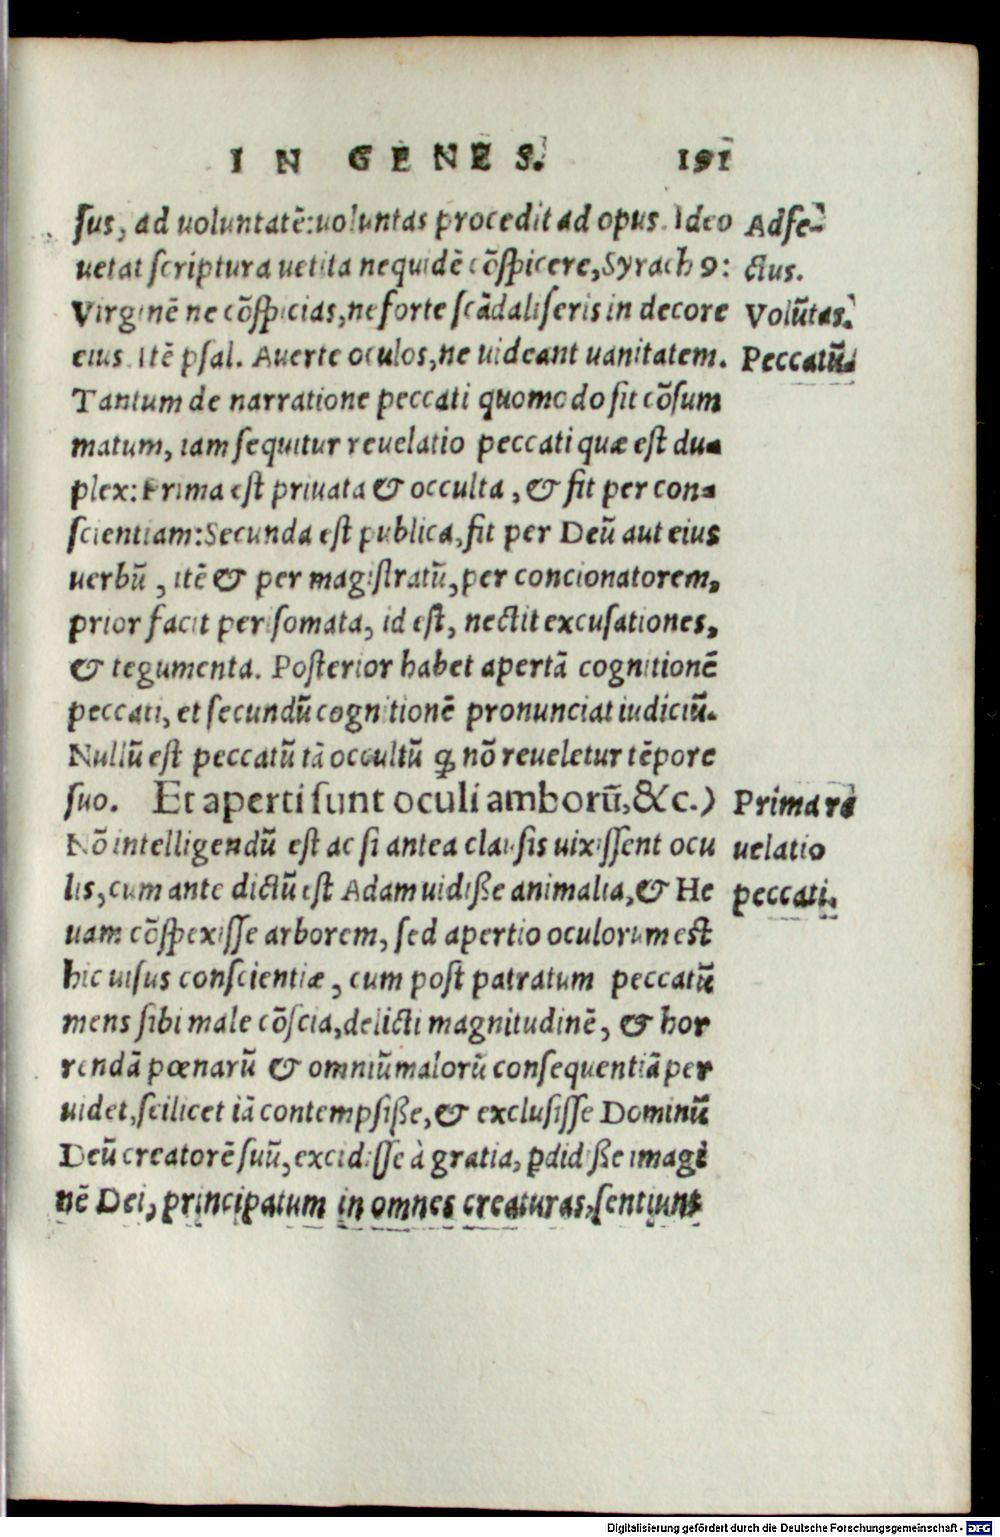 IN GENES. 191
sus, ad uoluntatē: uoluntas procedit ad opus. Ideo
uetat scriptura uetita ne quidē cōspicere, Syrach 9:
Virginē ne cōspicias, ne forte scādaliseris in decore
eius. Itē psal. Auerte oculos, ne uideant uanitatem.
Tantum de narratione peccati quomodo sit cōsum
matum, iam sequitur reuelatio peccati quæ est du-
plex: Prima est priuata & occulta, & fit per con-
scientiam: Secunda est publica, fit per Deū aut eius
uerbū, itē & per magistratū, per concionatorem,
prior facit perisomata, id est, nectit excusationes,
& tegumenta. Posterior habet apertā cognitionē
peccati, et secundū cognitionē pronunciat iudiciū.
Nullū est peccatū tā occultū ꝙ nō reueletur tēpore
suo. Et aperti sunt oculi amborū, &c.)
Nō intelligendū est ac si antea clausis uixissent ocu
lis, cum ante dictū est Adam uidiße animalia, & He
uam cōspexisse arborem, sed apertio oculorum est
hic uisus conscientiæ, cum post patratum peccatū
mens sibi male cōscia, delicti magnitudinē, & hor
rendā pœnarū & omniū malorū consequentiā per
uidet, scilicet iā contempsiße, & exclusisse Dominū
Deū creatorē suū, excidisse à gratia, ꝑdidiße imagi
nē Dei, principatum in omnes creaturas, sentiunt
Adfe-
ctus.
Volūtas.
Peccatū.
Prima re
uelatio
peccati.
Digitalisierung gefördert durch die Deutsche Forschungsgemeinschaft - DFG